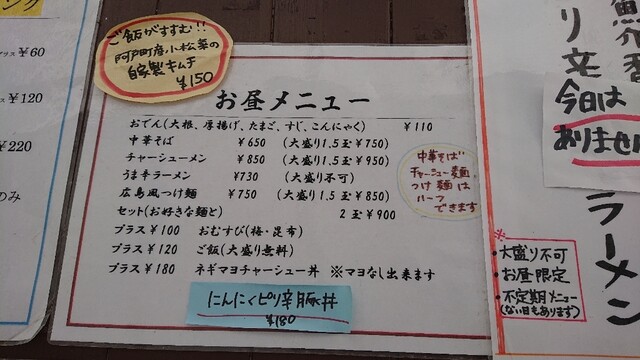 ング
プラス ¥60
¥120
¥220
のみ
ご飯がすすむ!!
阿戸町産小松菜の
自家製キムチ
¥150
お昼メニュー
おでん(大根、厚揚げ、たまご、すじ、こんにゃく) ¥110
中華そば ¥650 (大盛り1.5玉¥750)
チャーシューメン ¥850 (大盛り1.5玉¥950)
うま辛ラーメン ¥730 (大盛り不可)
広島風つけ麺 ¥750 (大盛り1.5玉¥850)
セット(お好きな麺と) 2玉¥900
プラス¥100 おむすび(梅・昆布)
プラス¥120 ご飯(大盛り無料)
プラス¥180 ネギマヨチャーシュー丼 ※マヨなし出来ます
中華そば
チャーシュー麺
つけ麺は
ハーフ
できます
にんにくピリ辛豚丼
¥180
魚介香
り辛
ラーメン
今日は
ありません
※
・大盛り不可
・お昼限定
・不定期メニュー
(ない日もあります)